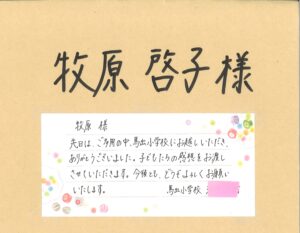 牧原 啓子様
牧原 様
先日は、ご多用の中、馬出小学校にお越しいただき、
ありがとうございました。子どもたちの感想をお渡し
させていただきます。今後とも、どうぞよろしくお願い
いたします。
馬出小学校